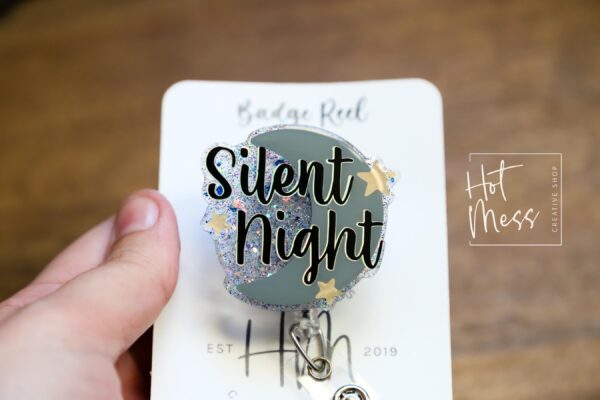 Badge Reel
Silent
Night
EST
2019
Hot
Mess
CREATIVE SHOP